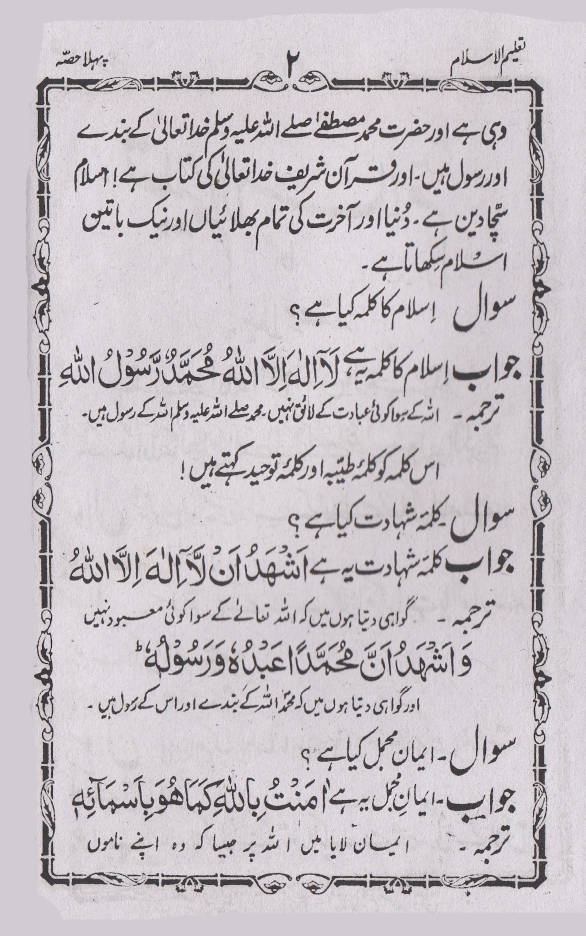 تعلیم الاسلام ۲ پہلا حصّہ
وہی ہے اور حضرت محمد مصطفےٰ صلے اللہ علیہ وسلم خدا تعالیٰ کے بندے
اور رسول ہیں۔ اور قرآن شریف خدا تعالیٰ کی کتاب ہے! اسلام
سچّا دین ہے۔ دُنیا اور آخرت کی تمام بھلائیاں اور نیک باتیں
اسلام سِکھاتا ہے۔
سوال اِسلام کا کلمہ کیا ہے؟
جواب اِسلام کا کلمہ یہ ہے لَآ اِلٰهَ اِلَّا اللّٰهُ مُحَمَّدٌ رَّسُوْلُ اللّٰهِ
ترجمہ۔ اللہ کے سِوا کوئی عبادت کے لائق نہیں۔ محمد صلے اللہ علیہ وسلم اللہ کے رسول ہیں۔
اس کلمہ کو کلمۂ طیّبہ اور کلمۂ توحید کہتے ہیں!
سوال۔ کلمۂ شہادت کیا ہے؟
جواب کلمۂ شہادت یہ ہے اَشْهَدُ اَنْ لَّآ اِلٰهَ اِلَّا اللّٰهُ
ترجمہ۔ گواہی دیتا ہوں میں کہ اللہ تعالےٰ کے سوا کوئی معبود نہیں
وَاَشْهَدُ اَنَّ مُحَمَّدًا عَبْدُهٗ وَرَسُوْلُهٗ ؕ
اور گواہی دیتا ہوں میں کہ محمدؐ اللہ کے بندے اور اس کے رسول ہیں۔
سوال۔ ایمان مجمل کیا ہے؟
جواب۔ ایمانِ مجمل یہ ہے اٰمَنْتُ بِاللّٰهِ كَمَا هُوَ بِاَسْمَآئِهٖ
ترجمہ۔ ایمان لایا میں اللہ پر جیسا کہ وہ اپنے ناموں